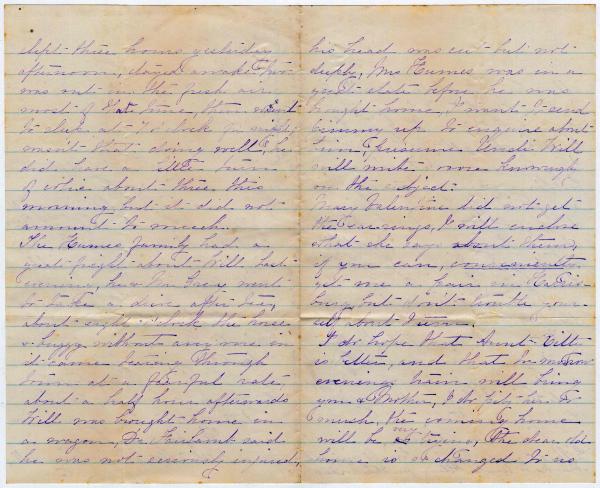 slept three hours yesterday
afternoon, stayed awake & two
was out in the fresh air
most of that time, then went
to sleep at 7 o'clock
wasn't that doing well? he
did have a little turn
of colic about three this
morning, but it did not
amount to much.
The Humes family had a
great fright about Will last
evening, he & went
to take a drive after tea,
about eight o'clock the horse
& buggy without any one in
it came tearing through
town at a fearful rate,
about a half hour afterwards
Will was brought home in
a wagon, Dr. said
he was not seriously injured,
his head was cut but not
deeply, Mrs Humes was in a
great state before he was
brought home, I want to send
up to enquire about
him, I presume Uncle Will
will write more thoroughly
on the subject.
Mary Valentine did not get
the earrings, I will enclose
what she says about them,
if you can, conveniently
get me a pair in
burg, but don't trouble your-
self about them.
I do hope that Aunt
is better, and that to-morrow
evening's train will bring
you & Mother, I do
much, the coming home
will be to my, The dear old
home is so changed to us